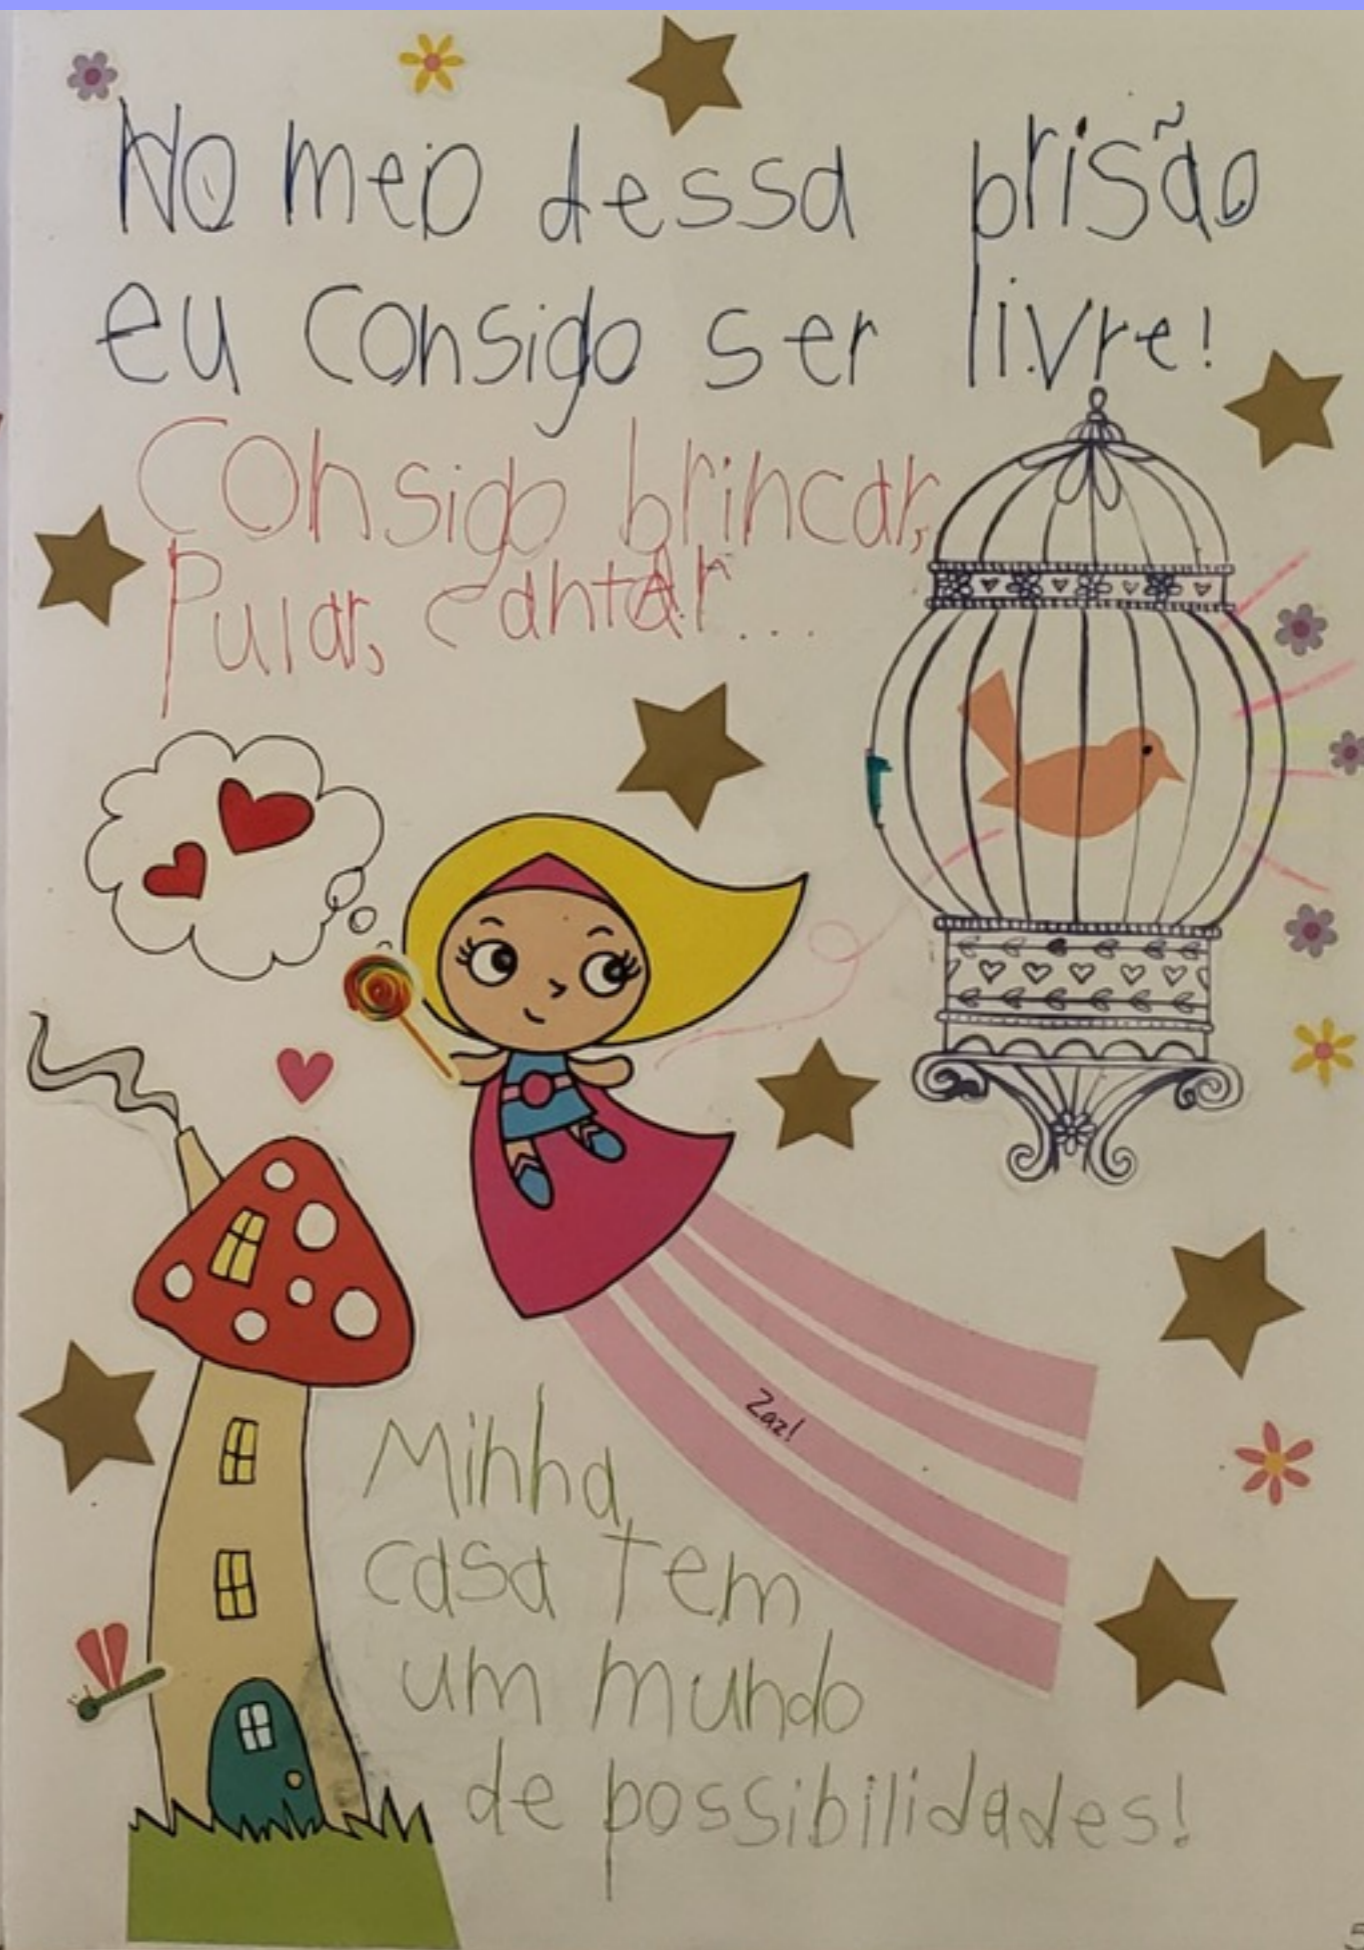 No meio dessa prisão
eu consigo ser livre!
Consigo brincar,
Pular, cantar...
Zaz!
Minha
casa tem
um mundo
de possibilidades!
5